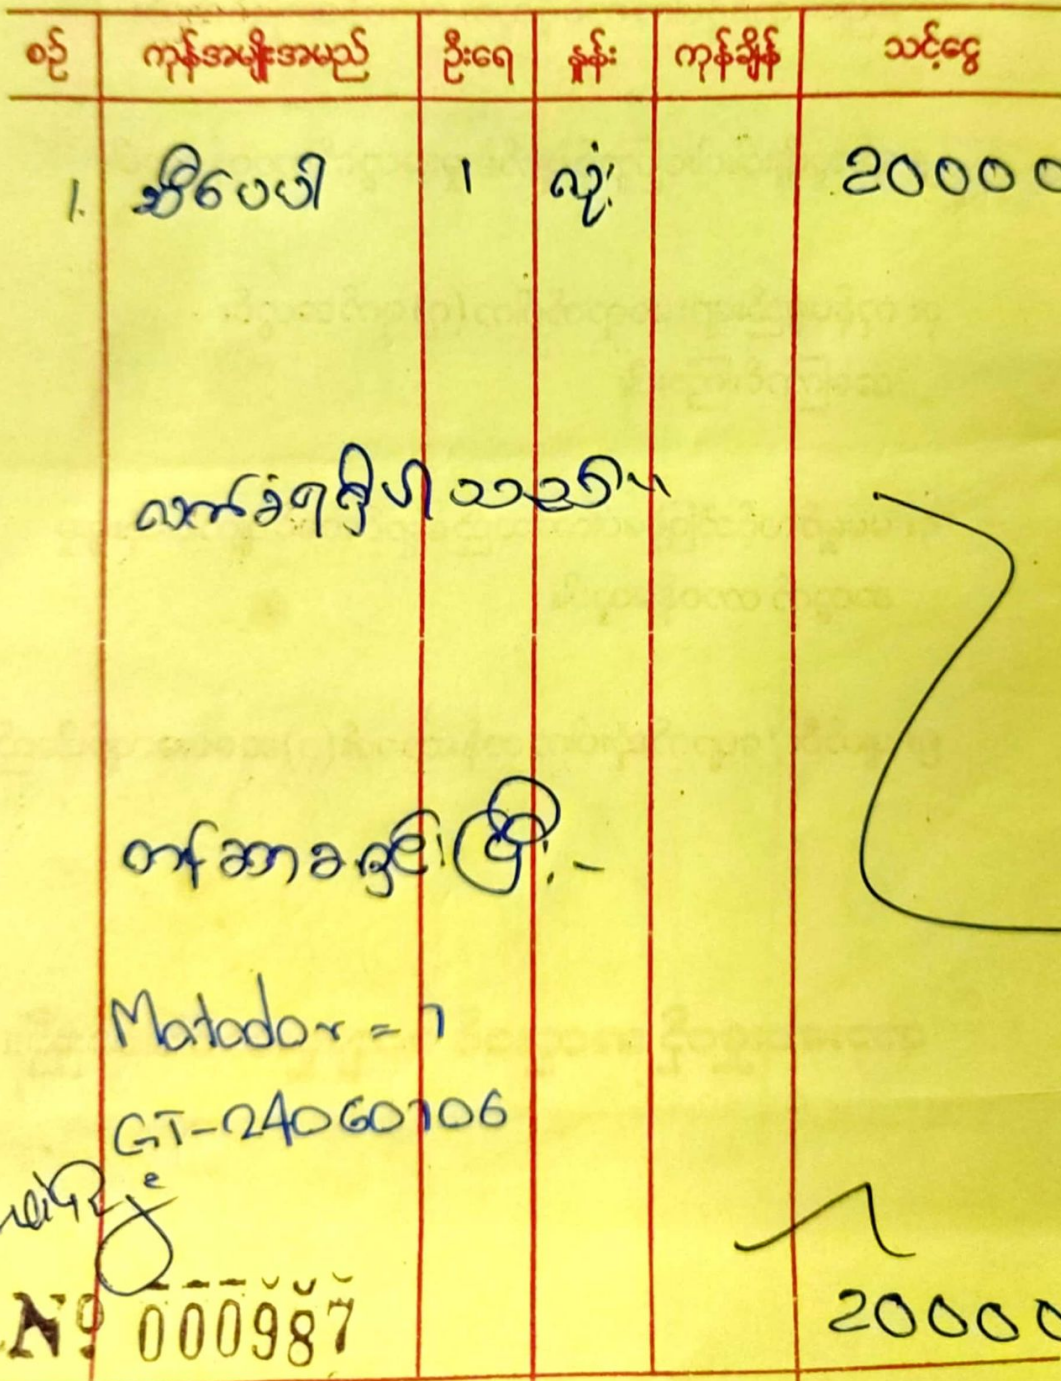 စဉ် ကုန်အမျိုးအမည် ဦးရေ နှုန်း ကုန်ချိန် သင့်ငွေ
1. ဆီပေပါ 1 လုံး 20000
လက်ခံရရှိပါသည်။
တန်ဆာခရှင်းပြီး -
Matador = 1
GT-24060106
№ 000987
20000